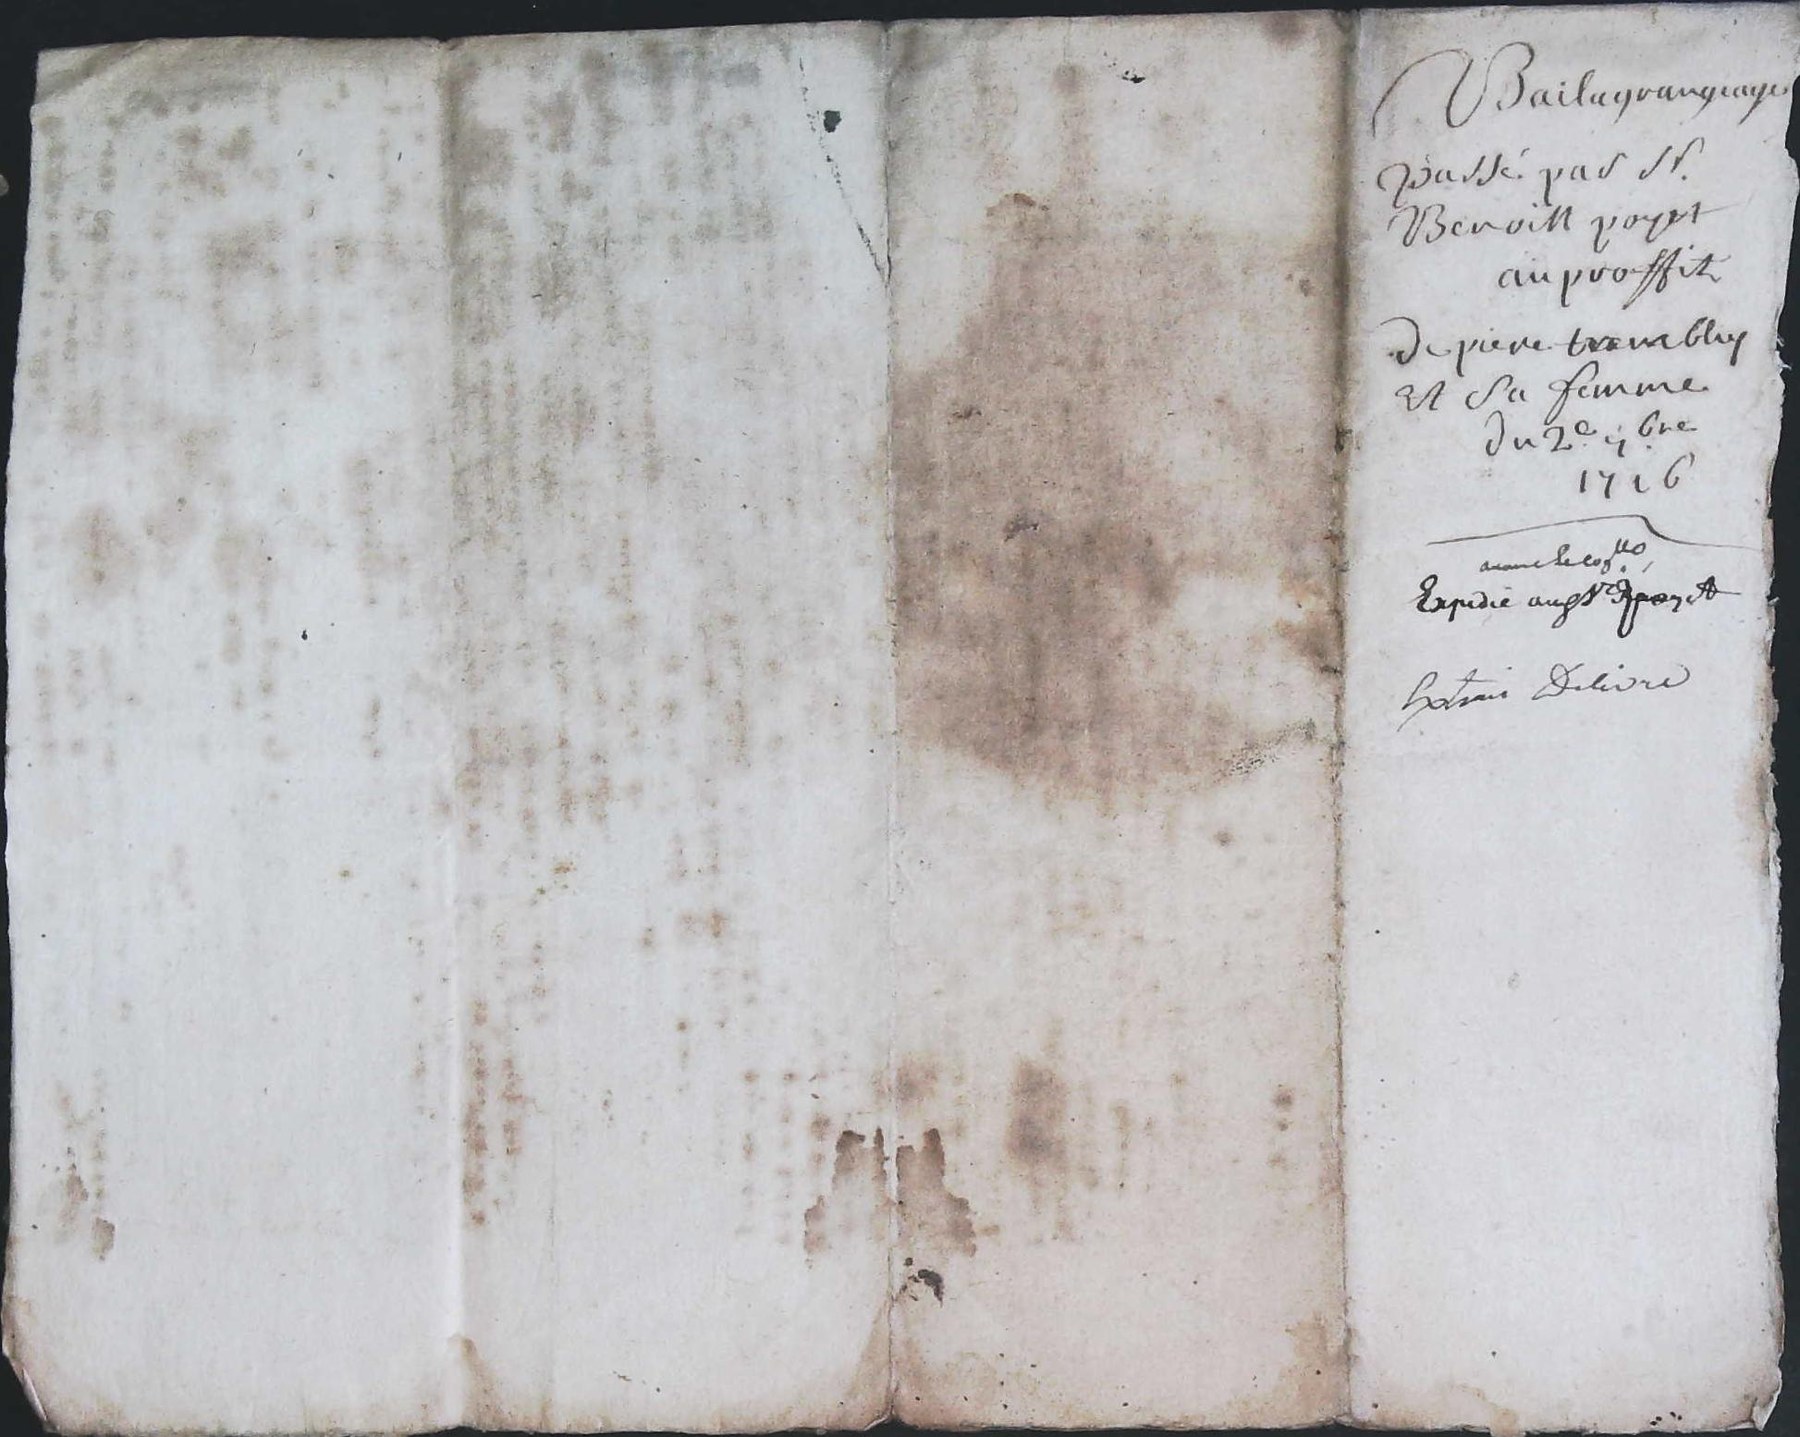 Bailagrangeage
passé par Sr.
Benoist poyet
au proffit
de piere trembley
et Sa femme
du 2e. 7bre
1716
Expedié aud Sr poyet
Extrait Delivré